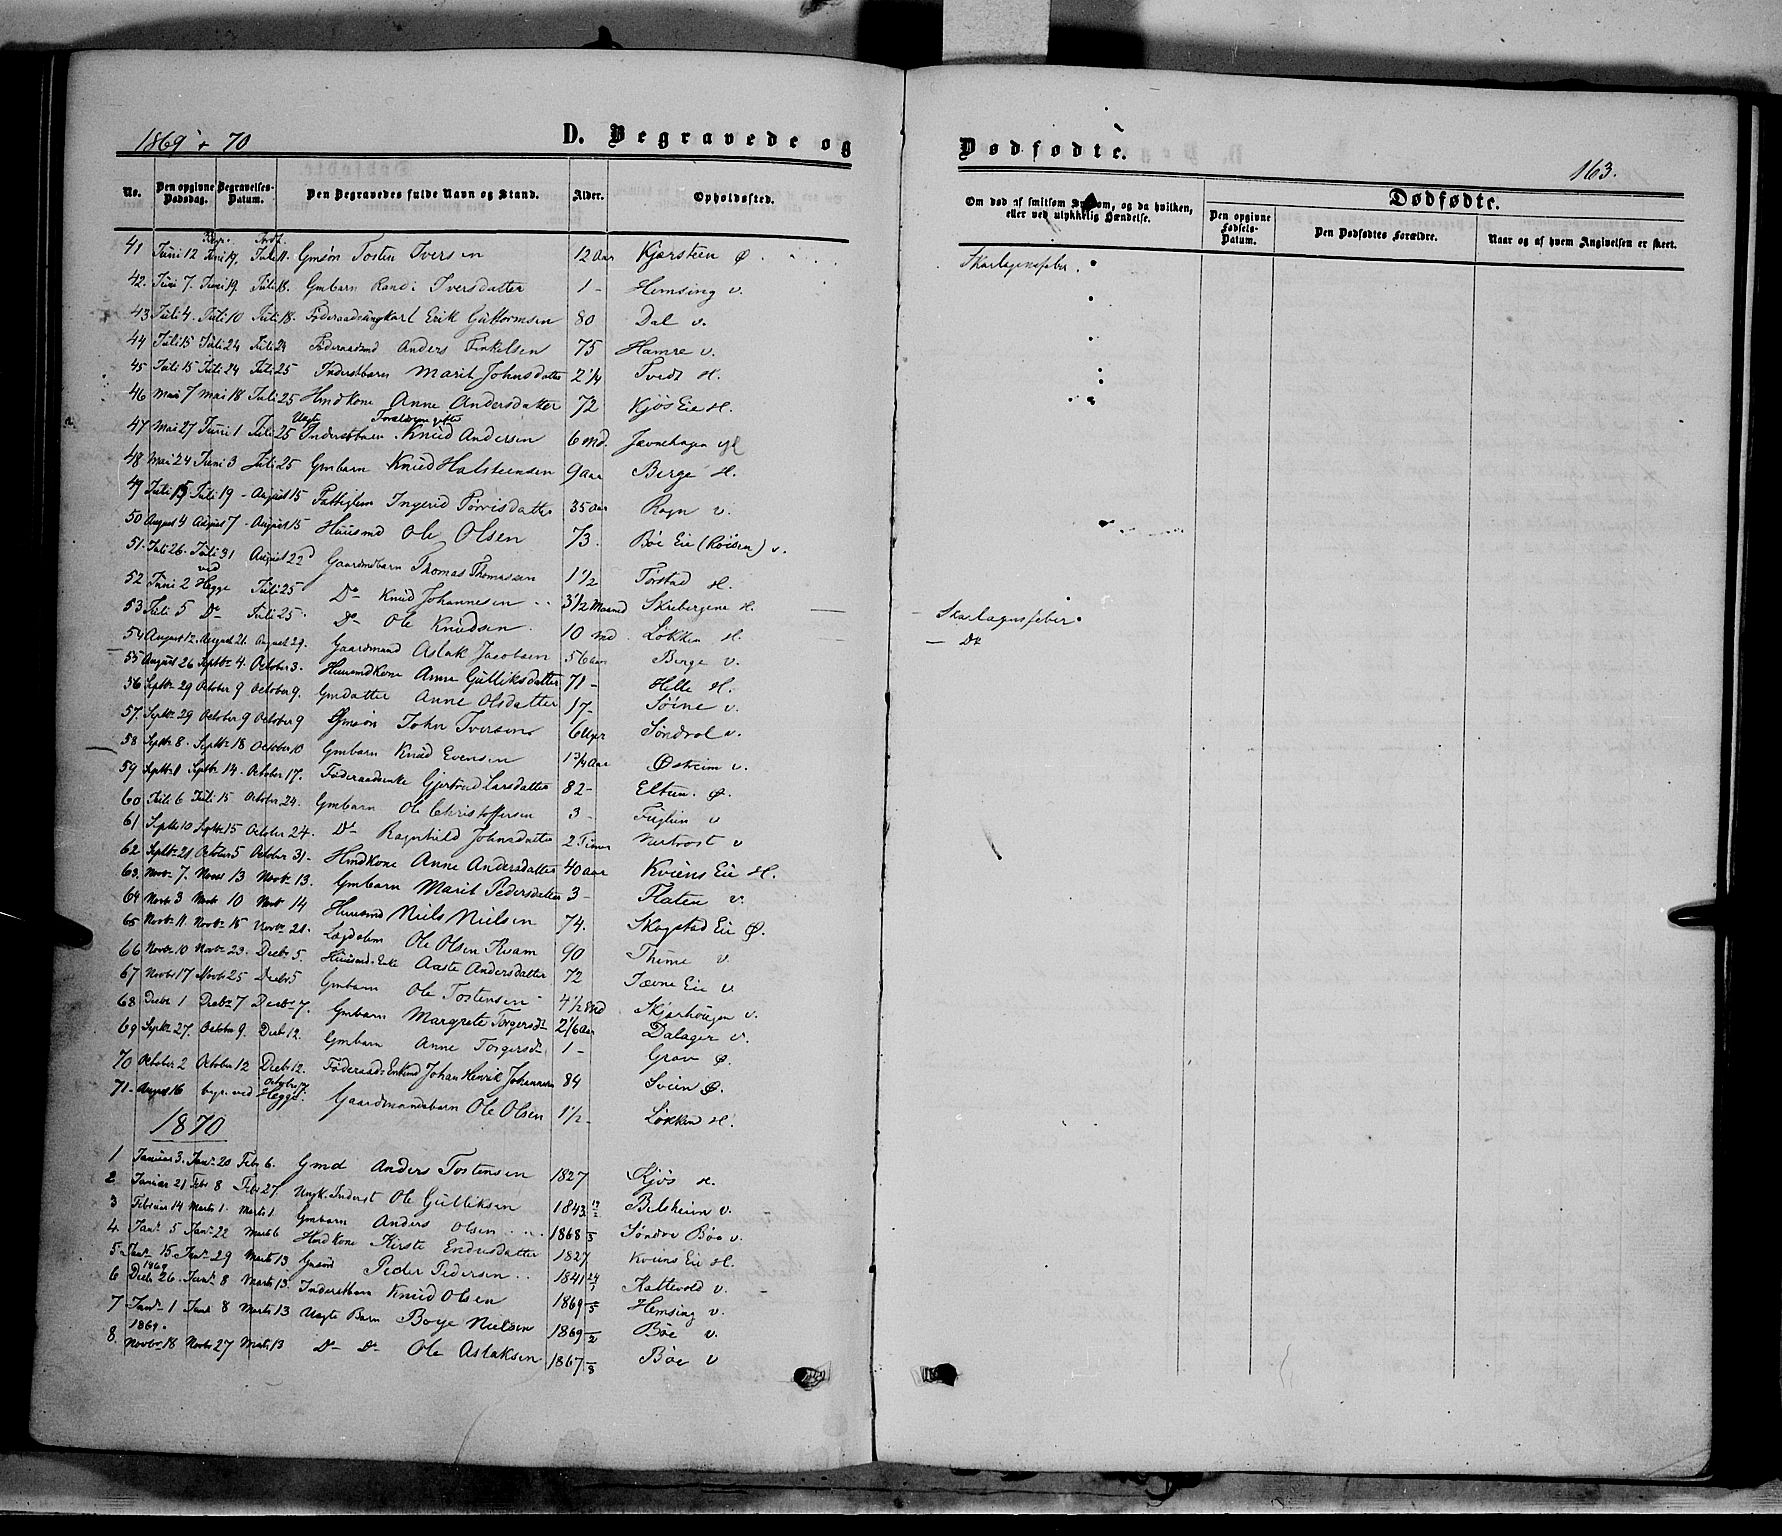 1869 & 70
D. Begravede og
Dødfødte.
163.
No. Den opgivne Dødsdag. Begravelses-Datum. Den Begravedes fulde Navn og Stand. Alder. Opholdssted.
Om død af smitsom Sygdom, og da hvilken, eller ved ulykkelig Hændelse.
Dødfødte.
Den opgivne Fødsels-Datum. Den Dødfødtes Forældre. Naar og af hvem Angivelsen er skeet.
41 Juni 12 Juni 19. Juli 11. Gmsøn Tosten Iversen 12 Aar Kjørsteen Ø. Skarlagensfeber.
42. Juni 7. Juni 19. Juli 18. Gmbarn Randi Iversdatter 1 - Hemsing v.
43 Juli 4. Juli 10 Juli 18. Føderaadsungkarl Erik Guttormsen 80 Dal v.
44 Juli 15 Juli 24 Juli 24 Føderaadsmd Anders Finkelsen 75 Hamre v.
45 Juli 15 Juli 24 Juli 25 Inderstbarn Marit Johnsdatter 2 1/4 Tvedt H.
46 Mai 7 Mai 18 Juli 25 Hmdkone Anne Andersdatter 72 Kjøs Eie H.
47 Mai 27 Juni 1 Juli 25 Uægte Inderstbarn Knud Andersen 6 Md. Jævnehagen H
48 Mai 24 Juni 3 Juli 25 Gmbarn Knud Halsteensen 9 Aar Berge H.
49 Juli 15 Juli 19 - August 15 Fattiglem Ingerid Torrisdatter 35 Aar Rogn v.
50 August 4 August 7 - August 15 Huusmd Ole Olsen 73. Bøe Eie (Røisen) v.
51. Juli 26. Juli 31 August 22 Gaardmdbarn Thomas Thomassen 1 1/2 Førstad H.
52 Juni 2 ved Hegge Juli 25 Do Knud Johannesen 3 1/2 Maaned Skrebergene H. Skarlagensfeber.
53 Juli 5 Do Juli 25. Do Ole Knudsen. 10 Md. Løkken H. — Do
54 August 12. August 21. August 29. Gaardmand Aslak Jacobsen 56 Aar Berge v.
55 August 26 Septbr 4. October 3. Huusmdkone Anne Gulliksdatter 71 - Helle H.
56 Septbr 29 October 9 October 9. Gmdatter Anne Olsdatter 17 - Søine v.
57. Septbr 29 October 9 October 9 Gmsøn John Iversen 6 Uger Søndrol v.
58 Septbr 8. Septbr 18 October 10 Gmbarn Knud Evensen 1 3/4 Aar Østreim v.
59 Septbr 1 Septbr 14. October 17. Føderaadsenke Gjertrud Larsdatter 82 - Eltun. Ø.
60 Juli 6 Juli 15 October 24. Gmbarn Ole Christoffersen 3 - Fuglin v
61 Septbr 10 Septbr 15 October 24. Do Ragnhild Johnsdatter 2 Timer Nertrost v
62. Septbr 21 October 5 October 31 - Hmdkone Anne Andersdatter 40 Aar Kviens Eie H.
63. Novbr 7. Novbr 13 Novbr 13. Gmbarn Marit Pedersdatter 3 - Flaten v.
64 Novbr 3 Novbr 10 Novbr 14 Huusmd Niels Nielsen 74. Skogstad Eie Ø.
65 Novbr 11. Novbr 15 Novbr 21. Lægdslem Ole Olsen Kvam 90 Thune v.
66 Novbr 10 Novbr 23. Decbr 5. Huusmd. Enke Aaste Andersdatter 72 Jævne Eie v
67 Novbr 17 Novbr 25 Decbr 5 Gmbarn Ole Tostensen 4 1/2 Md Skjørhougen v.
68 Decbr 1 Decbr 7 Decbr 7. Gmbarn Margrete Torgersdtr 2 1/6 Aar Dalager v.
69 Septbr 27. October 9. Decbr 12. Gmbarn Anne Torgersdtr 1 - Grøv Ø.
70 October 2 October 12 Decbr 12. Føderaads Enkemd Johan Henrik Johannesen 84 Sveen Ø.
71 - August 16 begr. ved Hegge. Gaardmandsbarn Ole Olsen 1 1/2 - Løkken H.
1870
1 Januar 3. Janr 20 Febr 6. Gmd Anders Tostensen 1827 Kjøs H.
2. Januar 21 Febr 8 Febr 27 Ungk. Inderst Ole Gulliksen 1843 12/2 Belsheim v.
3 Februar 14 Marts 1. Marts 1. Gmbarn Anders Olsen 1868 /3 Søndre Bøe v.
4. Janr 5 Janr 22 Marts 6 Hmdkone Kirste Endresdatter 1827 Kviens Eie H.
5 Janr 15 Janr 29 Marts 13 Gmsøn Peder Pedersen 1841 24/1 Kattevold v.
6 1869 Decbr 26. Janr 8 Marts 13. Inderstbarn Knud Olsen 1869 /5 Hemsing v.
7 Janr 1 Janr 8 Marts 13 Uægte Barn Boye Nielsen 1869 /2 Bøe v.
8. 1869. Novbr 18 Novbr 27 Marts 13 Do Do Ole Aslaksen 1867 /8 Bøe v